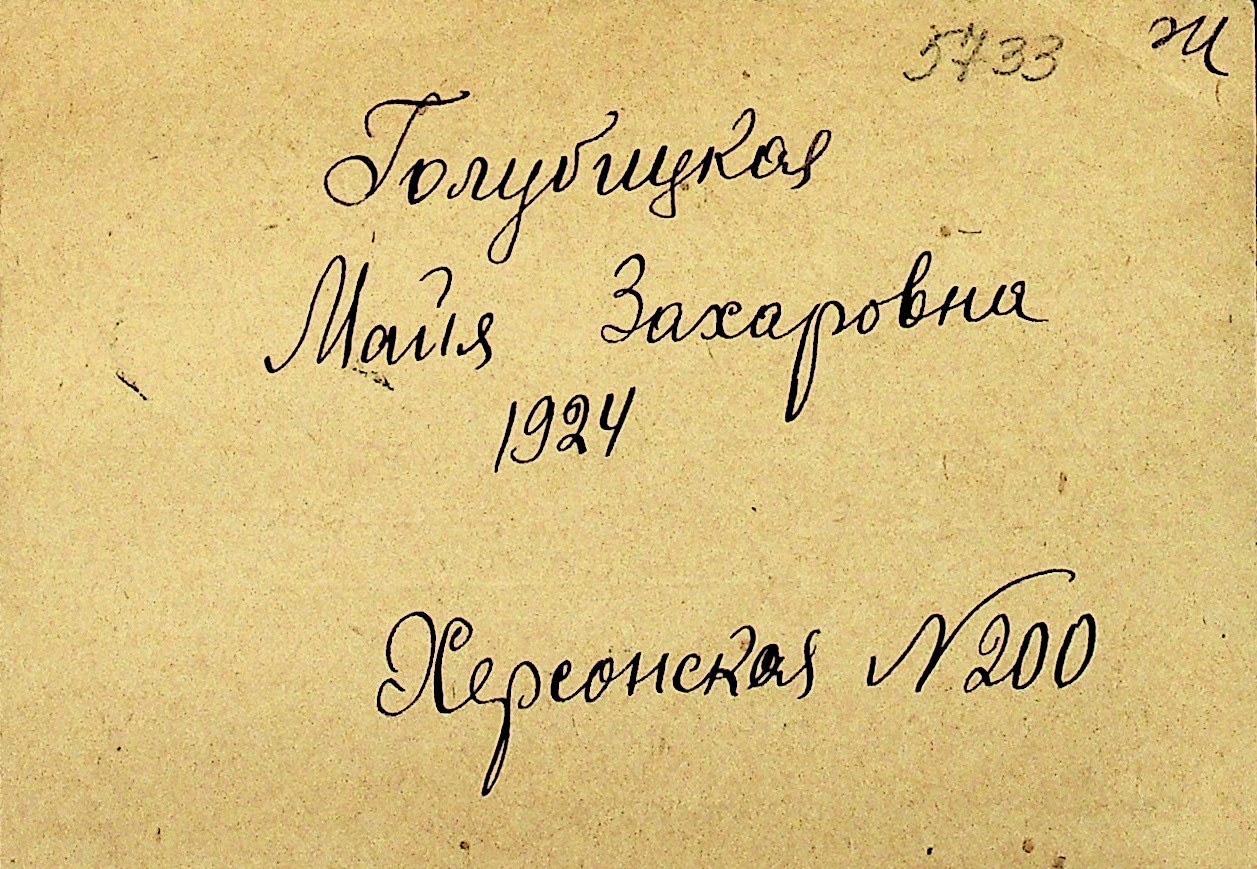 5733 Ж
Голубицкая
Майя Захаровна
1924
Херсонская N 200